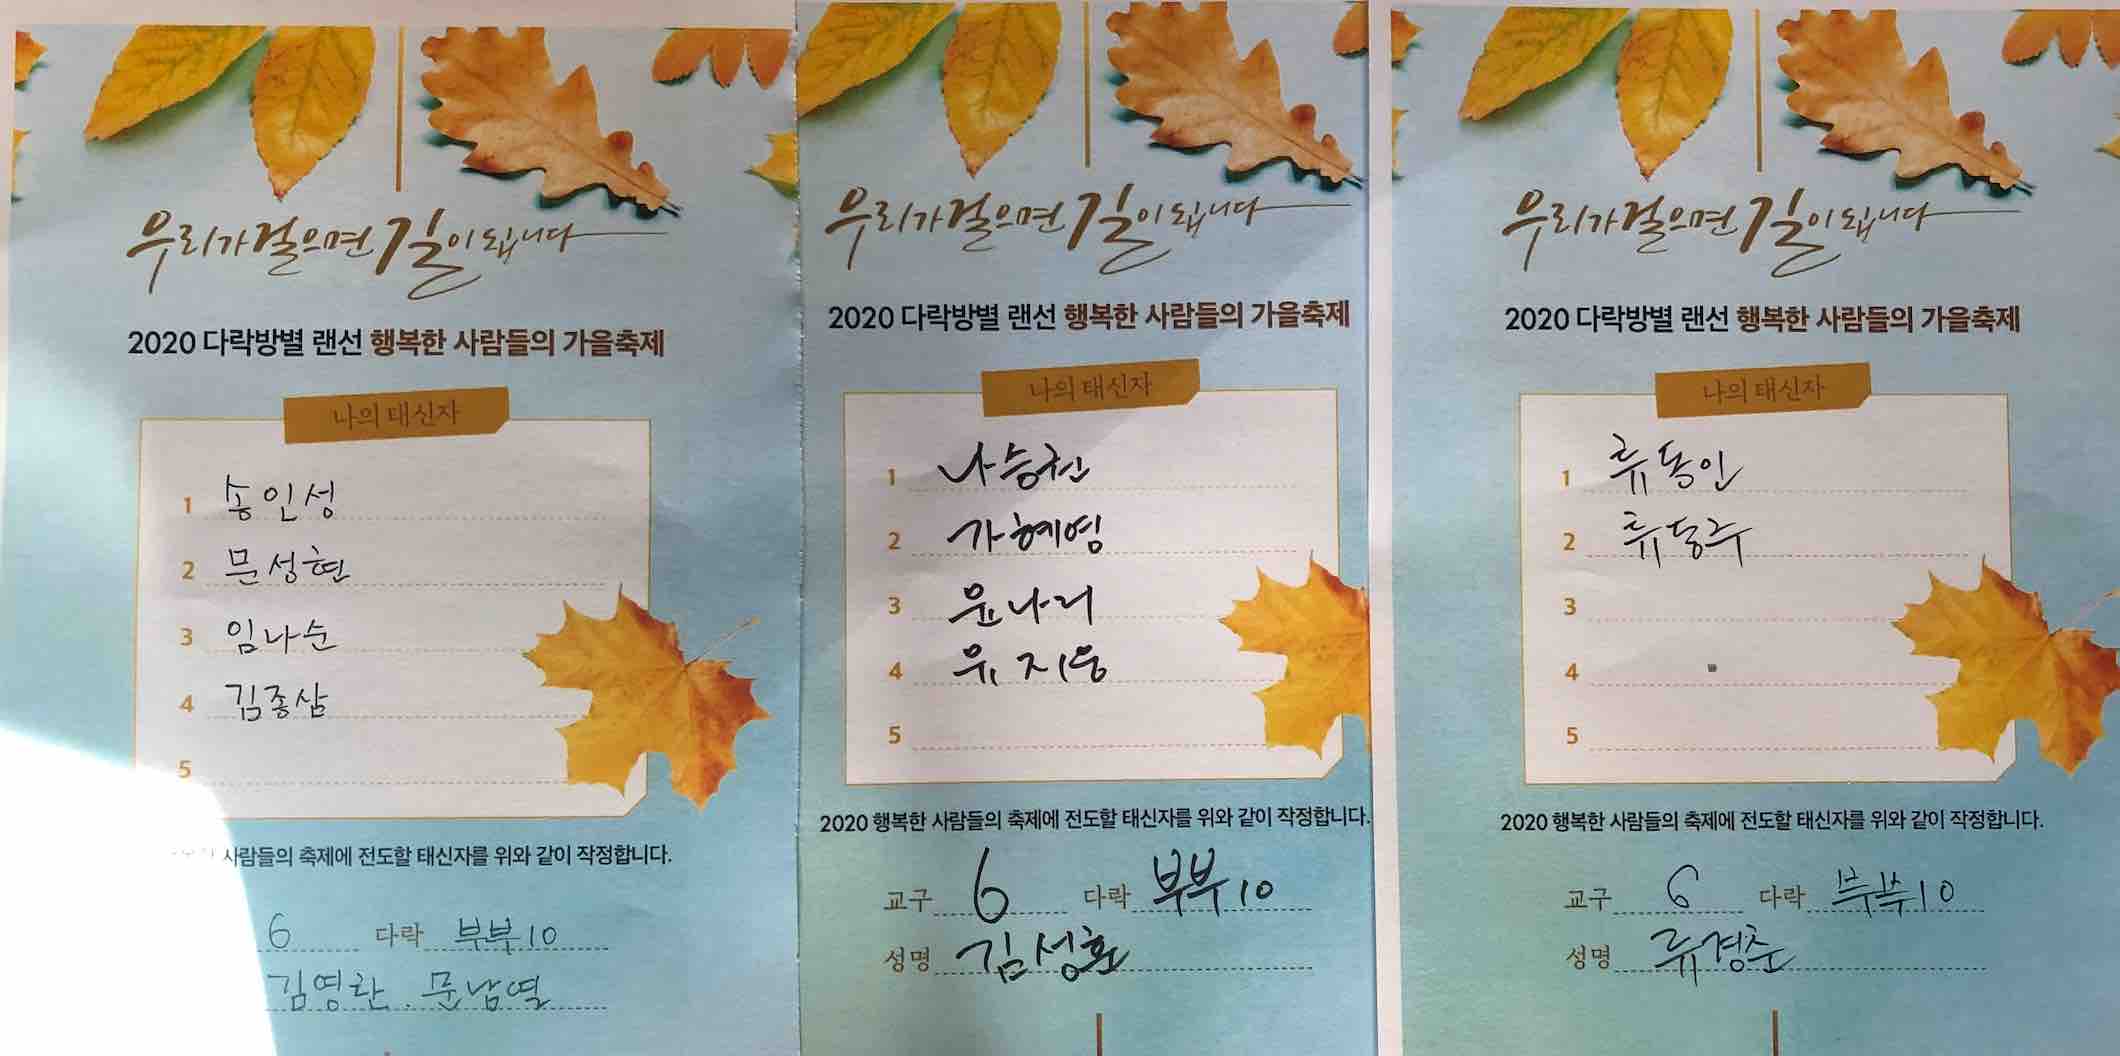 우리가 걸으면 길이 됩니다
2020 다락방별 랜선 행복한 사람들의 가을축제
나의 태신자
1 송인성
2 문성현
3 임나순
4 김종삼
5
사람들의 축제에 전도할 태신자를 위와 같이 작정합니다.
6 다락 부부10
김영란. 문남열
우리가 걸으면 길이 됩니다
2020 다락방별 랜선 행복한 사람들의 가을축제
나의 태신자
1 나승천
2 가혜영
3 윤나리
4 유지웅
5
2020 행복한 사람들의 축제에 전도할 태신자를 위와 같이 작정합니다.
교구 6 다락 부부10
성명 김성환
우리가 걸으면 길이 됩니다
2020 다락방별 랜선 행복한 사람들의 가을축제
나의 태신자
1 류동인
2 류동주
3
4
5
2020 행복한 사람들의 축제에 전도할 태신자를 위와 같이 작정합니다.
교구 6 다락 부부10
성명 류경춘